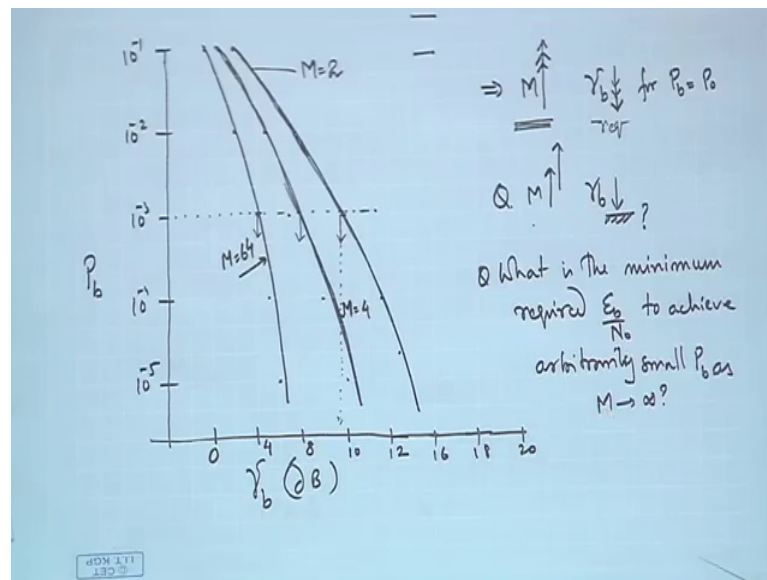 10⁻¹
10⁻²
10⁻³
10⁻¹
10⁻⁵
P_b
M=2
M=64
M=4
0 4 8 10 12 14 16 18 20
γ_b (dB)
⇒ M↑ γ_b↓ for P_b = P_0
req
Q. M↑↑ γ_b↓ ?
Q What is the minimum
required ε_b/N_0 to achieve
arbitrarily small P_b as
M → ∞?
CET
I.I.T. KGP